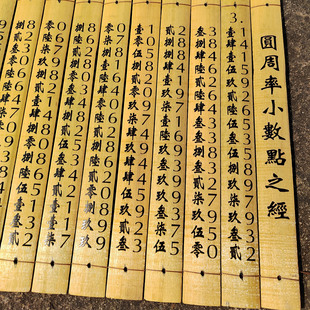 圓周率小數點之經
3.1415926535897932
壹肆壹伍玖貳陸伍叁伍捌玖柒玖叁貳
3846264338327950
叁捌肆陸貳陸肆叁叁捌叁貳柒玖伍零
2884197169399375
貳捌捌肆壹玖柒壹陸玖叁玖玖叁柒伍
1058209749445923
壹零伍捌貳零玖柒肆玖肆肆伍玖貳叁
0781640628620899
零柒捌壹陸肆零陸貳捌陸貳零捌玖玖
8628034825342117
捌陸貳捌零叁肆捌貳伍叁肆貳壹壹柒
0679821480865132
零陸柒玖捌貳壹肆捌零捌陸伍壹叁貳